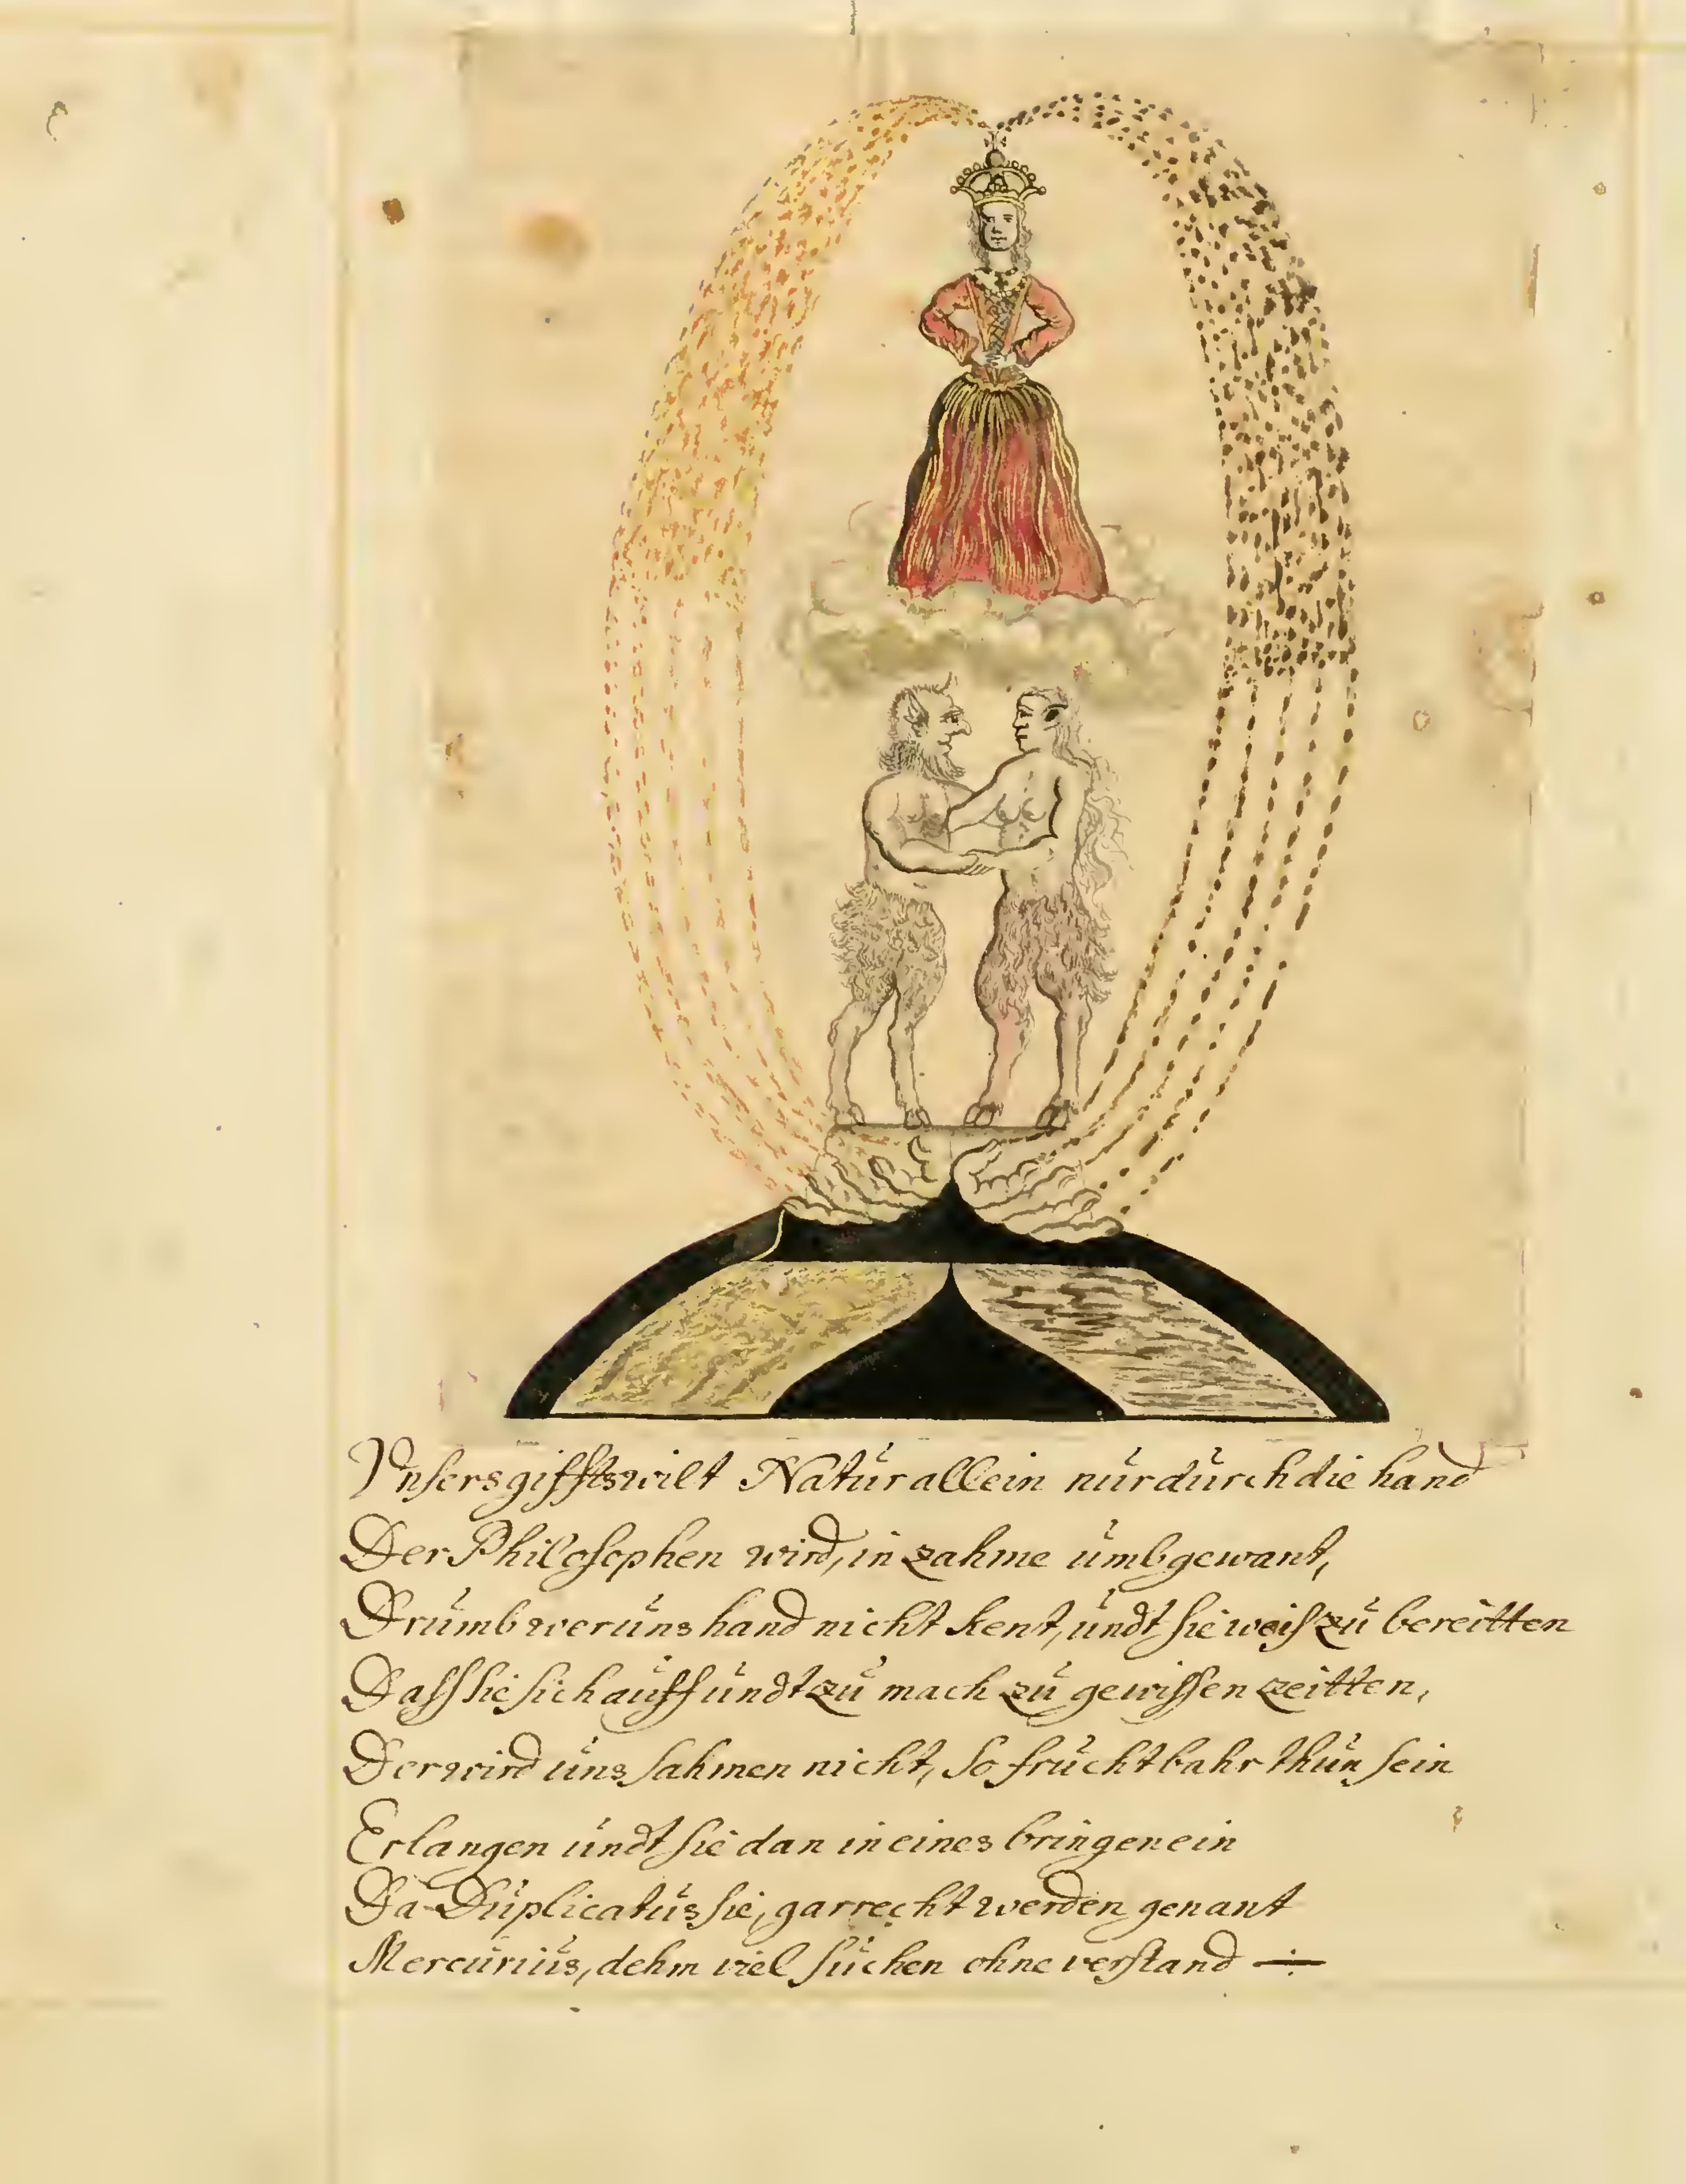 Vnsers giffts wilt Natur allein nur durch die hand
Der Philosophen wird, in zahme umbgewant,
Drumb wer uns hand nicht kent, undt sie weiß zu bereitten
Dass sie sich auff undt zu mach zu gewissen zeitten,
Der wird uns sahmen nicht, so fruchtbahr thun sein
Erlangen undt sie dan in eines bringen ein
Da Duplicatus sie, gar recht werden genant
Mercurius, dehm viel suchen ohne verstand